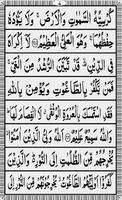 كُرْسِيُّهُ السَّمٰوٰتِ وَالْاَرْضَ ۚ وَلَا يَـُٔوْدُهٗ
حِفْظُهُمَا ۚ وَهُوَ الْعَلِيُّ الْعَظِيْمُ لَآ اِكْرَاهَ
فِي الدِّيْنِ ۙ قَدْ تَّبَيَّنَ الرُّشْدُ مِنَ الْغَيِّ ۚ
فَمَنْ يَّكْفُرْ بِالطَّاغُوْتِ وَيُؤْمِنْۢ بِاللّٰهِ
فَقَدِ اسْتَمْسَكَ بِالْعُرْوَةِ الْوُثْقٰى ۗ لَا انْفِصَامَ لَهَا
وَاللّٰهُ سَمِيْعٌ عَلِيْمٌ اَللّٰهُ وَلِيُّ الَّذِيْنَ اٰمَنُوْا
يُخْرِجُهُمْ مِّنَ الظُّلُمٰتِ اِلَى النُّوْرِ وَالَّذِيْنَ
كَفَرُوْٓا اَوْلِيَآؤُهُمُ الطَّاغُوْتُ يُخْرِجُوْنَهُمْ مِّنَ النُّوْرِ اِلَى